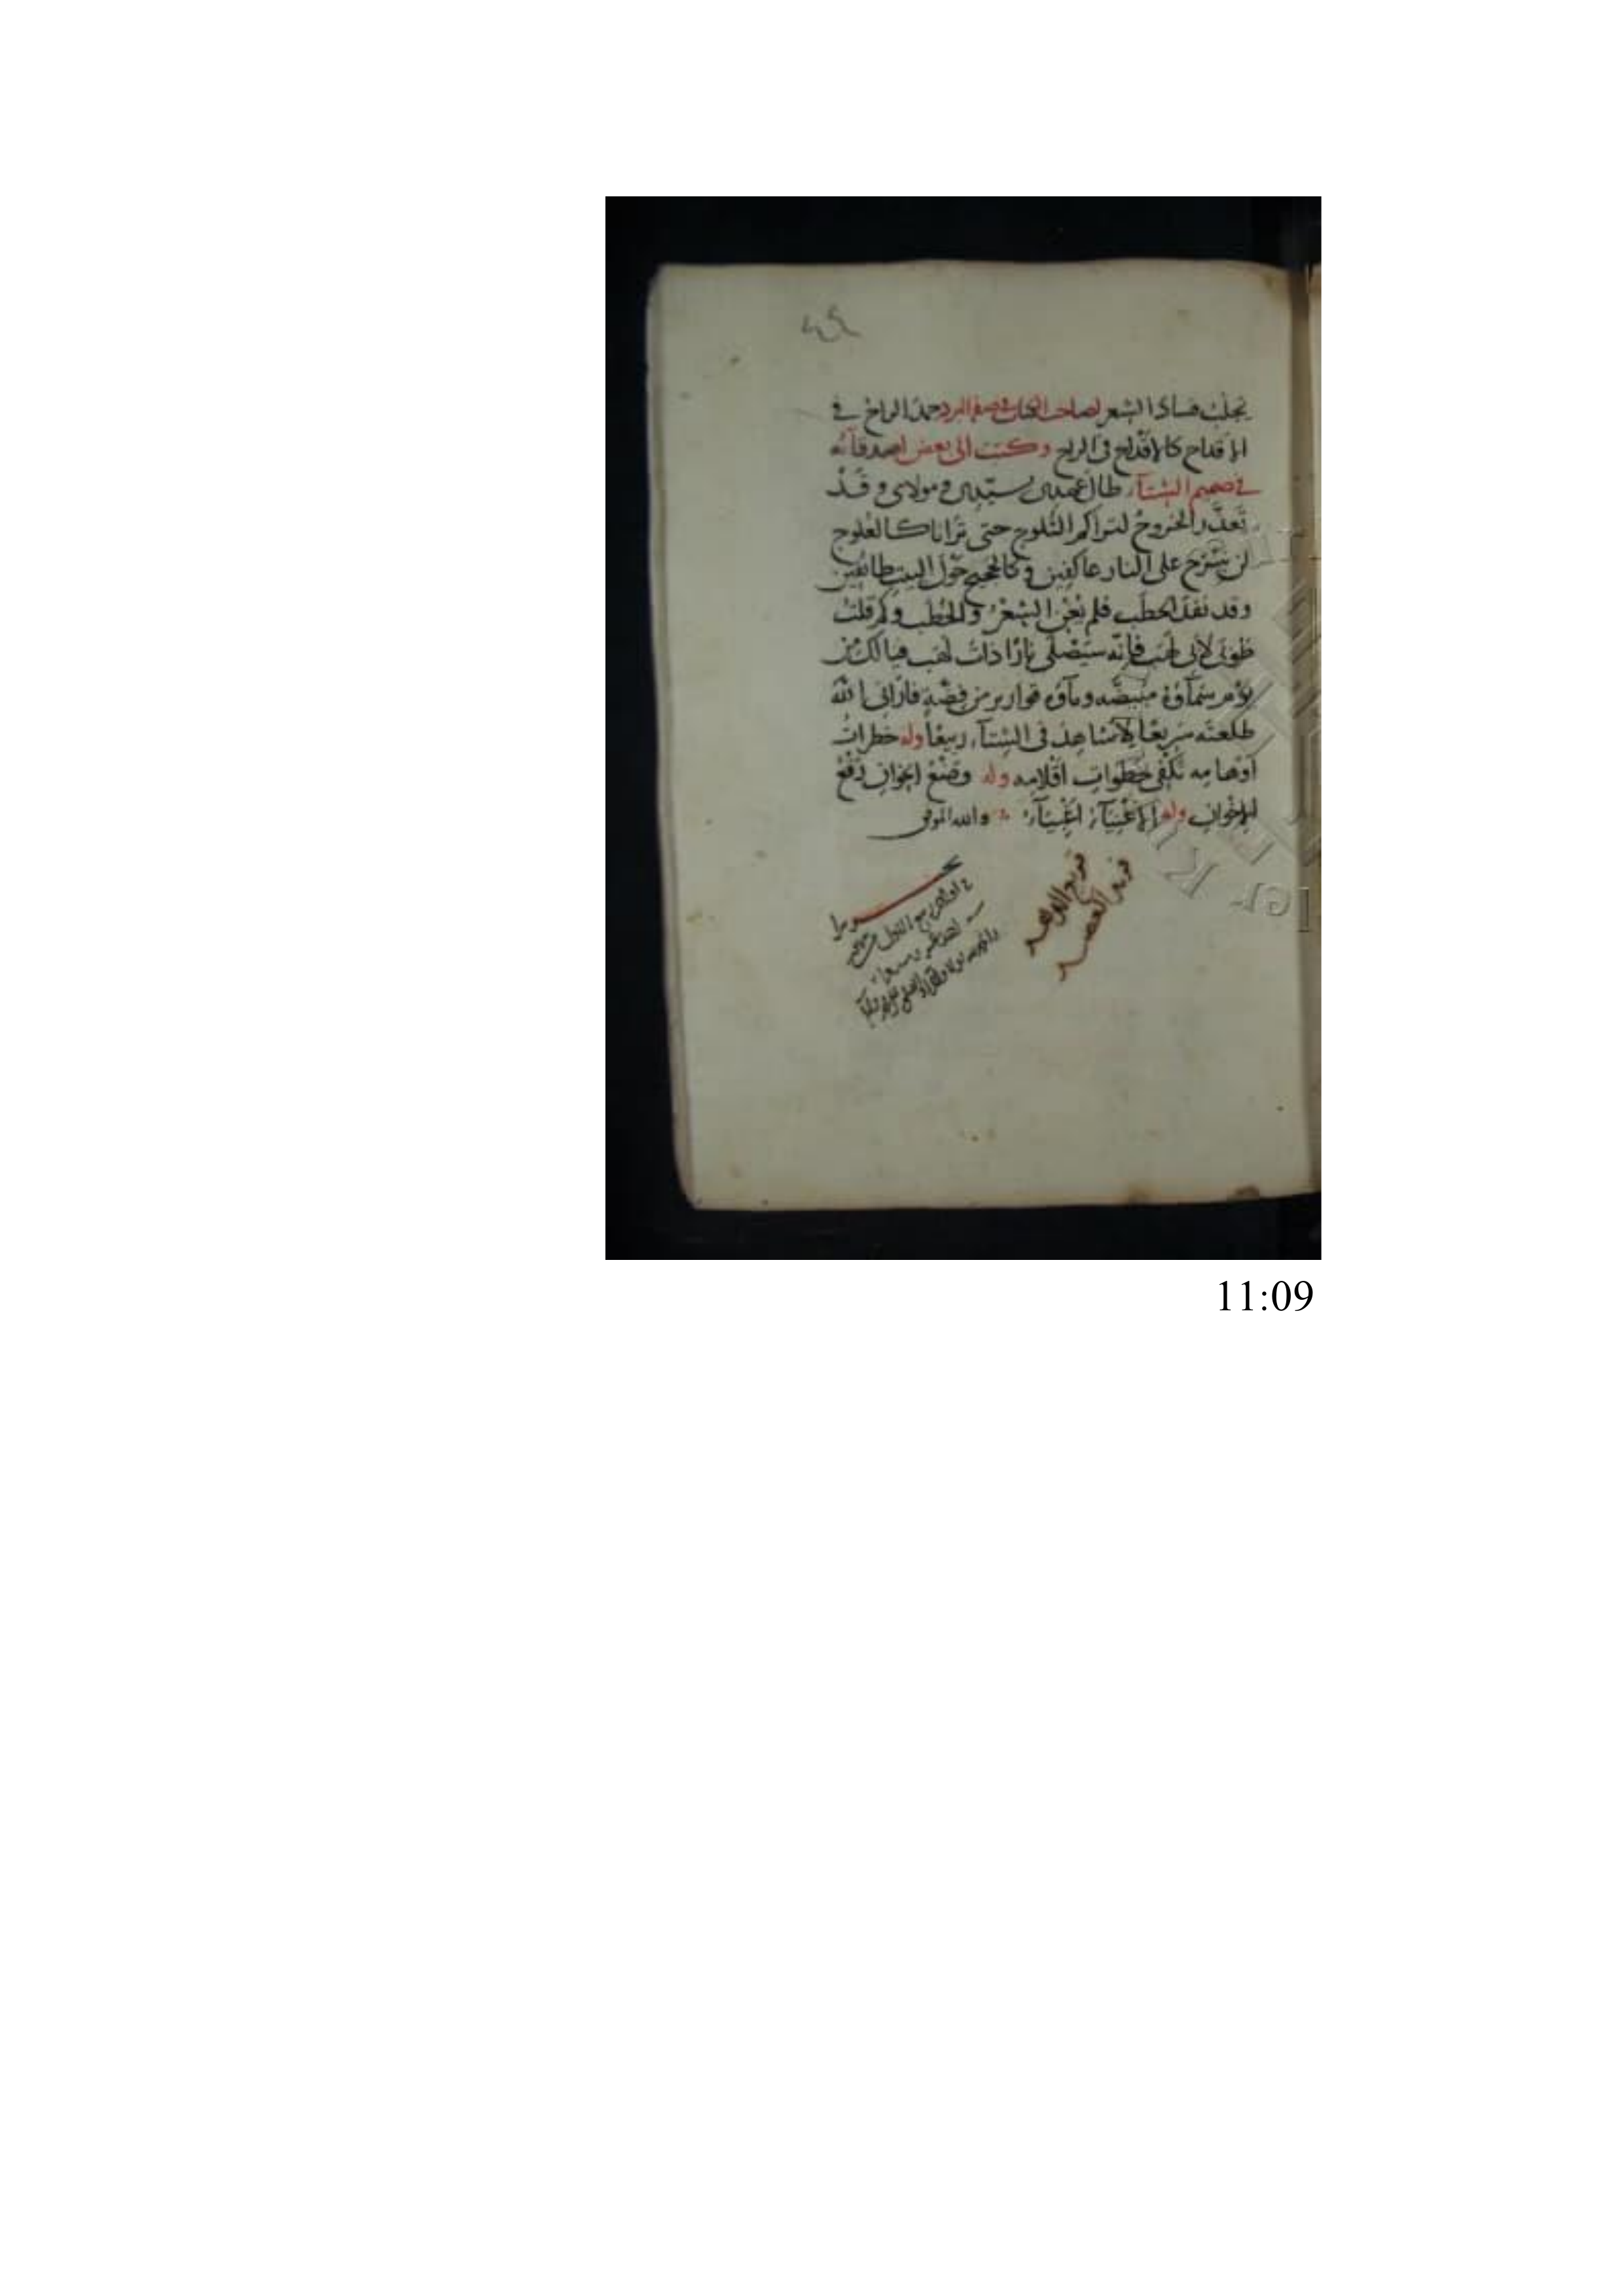 يجلب فساد الشعر لصاحب الكتاب في صفة البرد جمد الراح في
الاقداح كالاقداح في الراح وكتب الى بعض اصدقائه
في صميم الشتآء طال عهدي بسيّدي ومولاى وقد
تعذّر الخروج لتراكم الثلوج حتى ترانا كالعلوج
لن نبرح على النار عاكفين وكالحجيج حول البيت طائفين
وقد نفد الحطب فلم يغن الشعر والخطب وكم قلت
طوبى لأبى لهب فإنّه سيصلى نارًا ذات لهب فيا لك من
يوم سمآؤه مبيضّه ومآؤه قوارير من فضّة فارانى الله
طلعته سريعًا لاشاهد فى الشتآء ربيعًا وله خطرات
اوهامه تكفى خطوات اقلامه وله وضع الخوان رفع
الاخوان وله الاغنيآء اغبيآء والله الموفق
فريد العصر
11:09